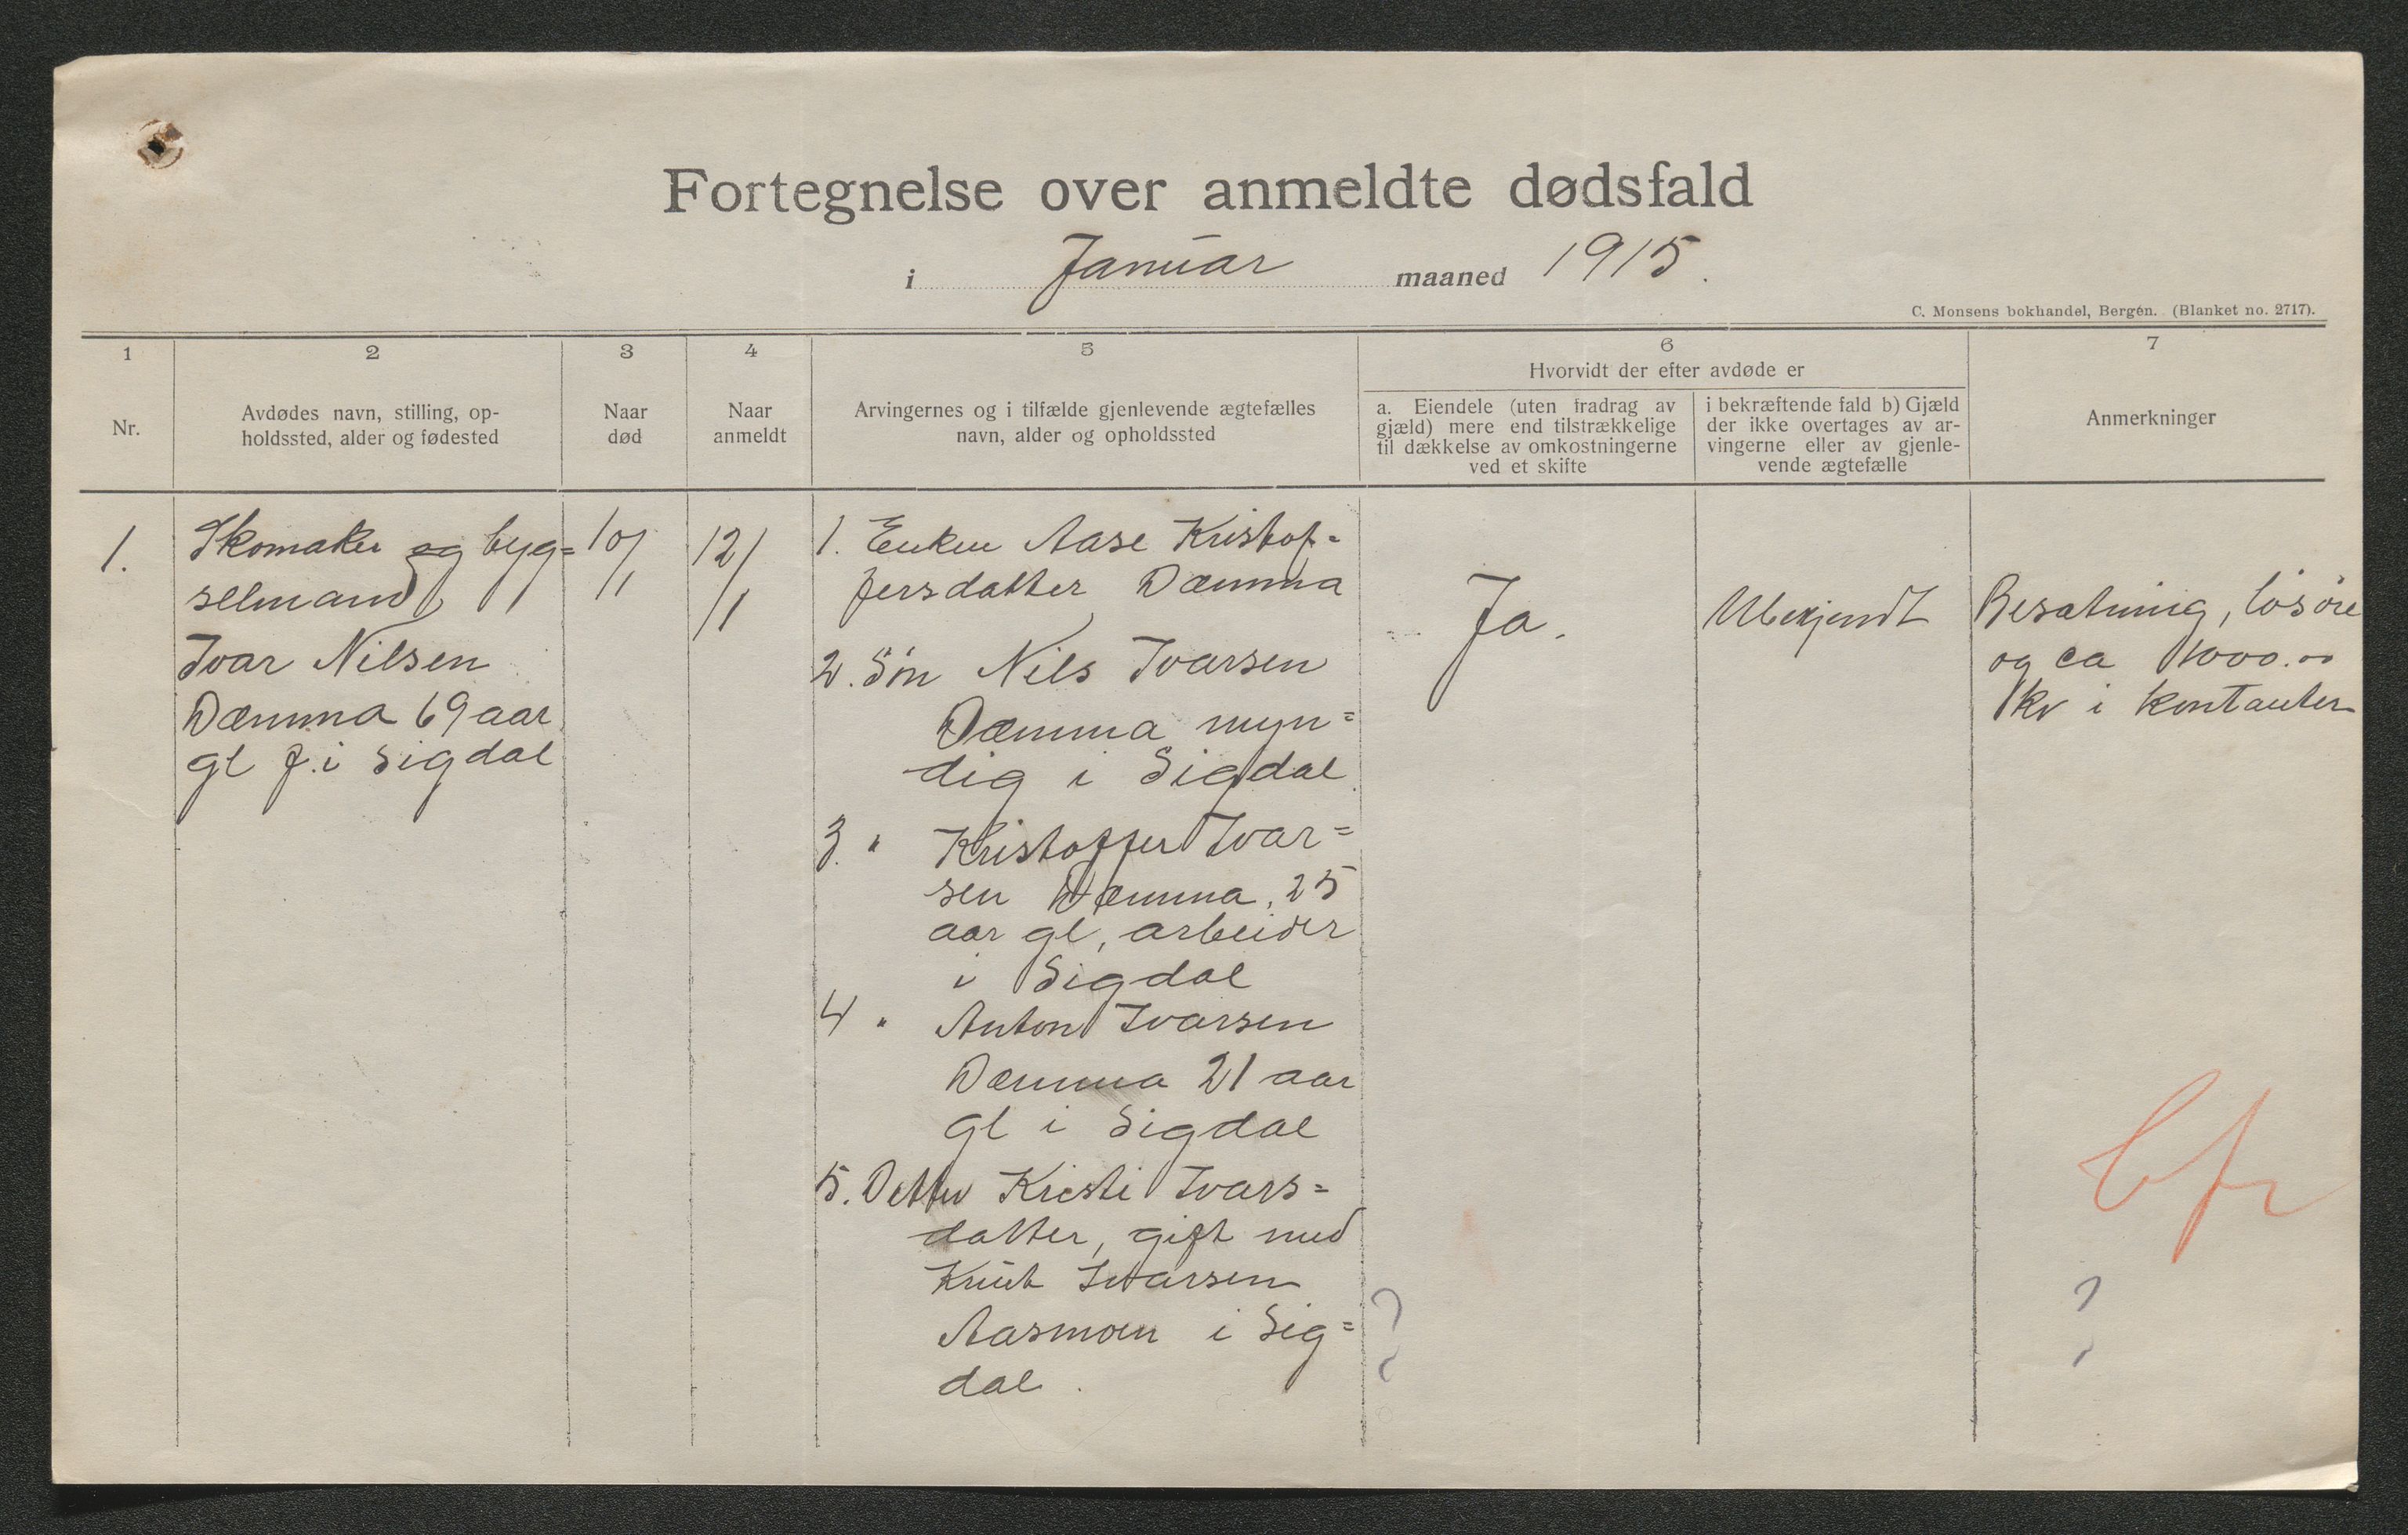 Fortegnelse over anmeldte dødsfald
i Januar maaned 1915.
C. Monsens bokhandel, Bergen. (Blanket no. 2717).
1
2
3
4
5
6
7
Nr.
Avdødes navn, stilling, op-
holdssted, alder og fødested
Naar
død
Naar
anmeldt
Arvingernes og i tilfælde gjenlevende ægtefælles
navn, alder og opholdssted
Hvorvidt der efter avdøde er
a. Eiendele (uten fradrag av
gjæld) mere end tilstrækkelige
til dækkelse av omkostningerne
ved et skifte
i bekræftende fald b) Gjæld
der ikke overtages av ar-
vingerne eller av gjenle-
vende ægtefælle
Anmerkninger
1.
Skomaker og byg=
selmand
Ivar Nilsen
Dæmma 69 aar
gl f. i Sigdal
10/1
12/1
1. Enken Aase Kristof=
fersdatter Dæmma
2. Søn Nils Ivarsen
Dæmma myn=
dig i Sigdal.
3. " Kristoffer Ivar=
sen Dæmma, 25
aar gl, arbeider
i Sigdal
4 " Anton Ivarsen
Dæmma 21 aar
gl i Sigdal
5. Datter Kristi Ivars=
datter, gift med
Knut Ivarsen
Aasmoen i Sig=
dal.
Ja.
Ubekjendt
Besætning, løsøre
og ca 1000.00
kr i kontanter